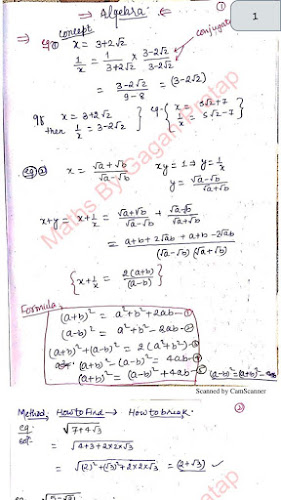 ⇒ Algebra ⇐ ①
1
concept
⇒ eg① x = 3+2√2
conjugate
1/x = 1/(3+2√2) × (3-2√2)/(3-2√2)
= (3-2√2)/(9-8) = (3-2√2)
If x = 3+2√2
then 1/x = 3-2√2
eg- { x = 5√2+7
1/x = 5√2-7
eg② x = (√a+√b)/(√a-√b) xy = 1 ⇒ y = 1/x
y = (√a-√b)/(√a+√b)
x+y = x+1/x = (√a+√b)/(√a-√b) + (√a-√b)/(√a+√b)
= (a+b+2√ab + a+b-2√ab)/((√a-√b)(√a+√b))
{ x+1/x = 2(a+b)/(a-b) }
Formula,
(a+b)² = a²+b²+2ab-①
(a-b)² = a²+b²-2ab-②
(a+b)²+(a-b)² = 2(a²+b²)-③
(a+b)²-(a-b)² = 4ab-④
(a+b)² = (a-b)²+4ab-⑤
Maths By Gagan Pratap
Scanned by CamScanner
②
Method, How to Find → How to break.
eg. √(7+4√3)
= √(4+3+2×2√3)
= √((2)²+(√3)²+2×2×√3) = (2+√3) ✓